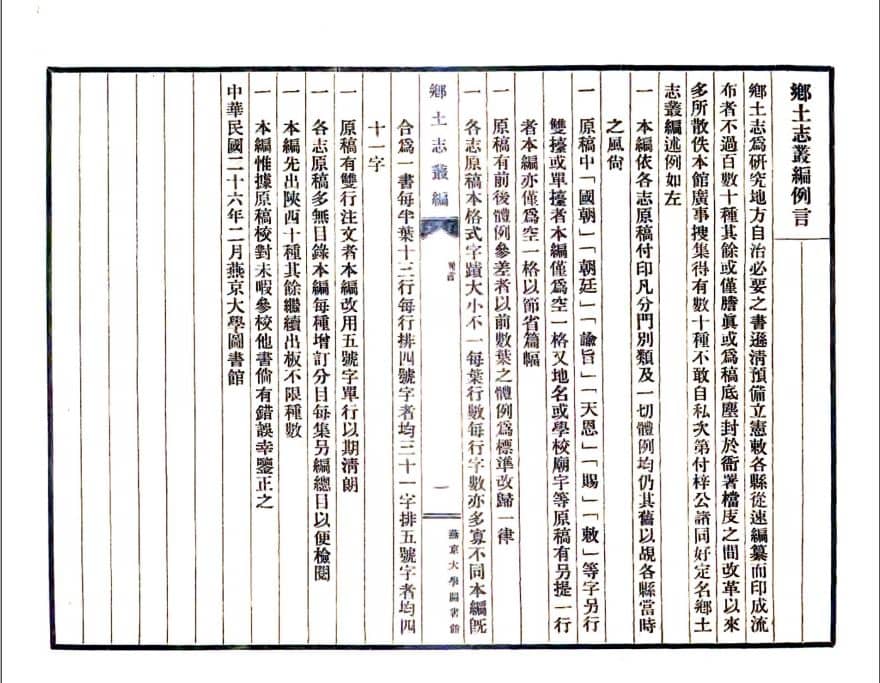 鄉土志叢編例言
鄉土志爲研究地方自治必要之書遜淸預備立憲敕各縣從速編纂而印成流
布者不過百數十種其餘或僅謄眞或爲稿底塵封於衙署檔庋之間改革以來
多所散佚本館廣事搜集得有數十種不敢自私次第付梓公諸同好定名鄉土
志叢編述例如左
一 本編依各志原稿付印凡分門別類及一切體例均仍其舊以覘各縣當時
之風尙
一 原稿中「國朝」「朝廷」「諭旨」「天恩」「賜」「敕」等字另行
雙擡或單擡者本編僅爲空一格又地名或學校廟宇等原稿有另提一行
者本編亦僅爲空一格以節省篇幅
一 原稿有前後體例參差者以前數葉之體例爲標準改歸一律
一 各志原稿本格式字蹟大小不一每葉行數每行字數亦多寡不同本編旣
鄉土志叢編
一
燕京大學圖書館
合爲一書每半葉十三行每行排四號字者均三十一字排五號字者均四
十一字
一 原稿有雙行注文者本編改用五號字單行以期淸朗
一 各志原稿多無目錄本編每種增訂分目每集另編總目以便檢閱
一 本編先出陝西十種其餘繼續出板不限種數
一 本編惟據原稿校對未暇參校他書倘有錯誤幸鑒正之
中華民國二十六年二月燕京大學圖書館